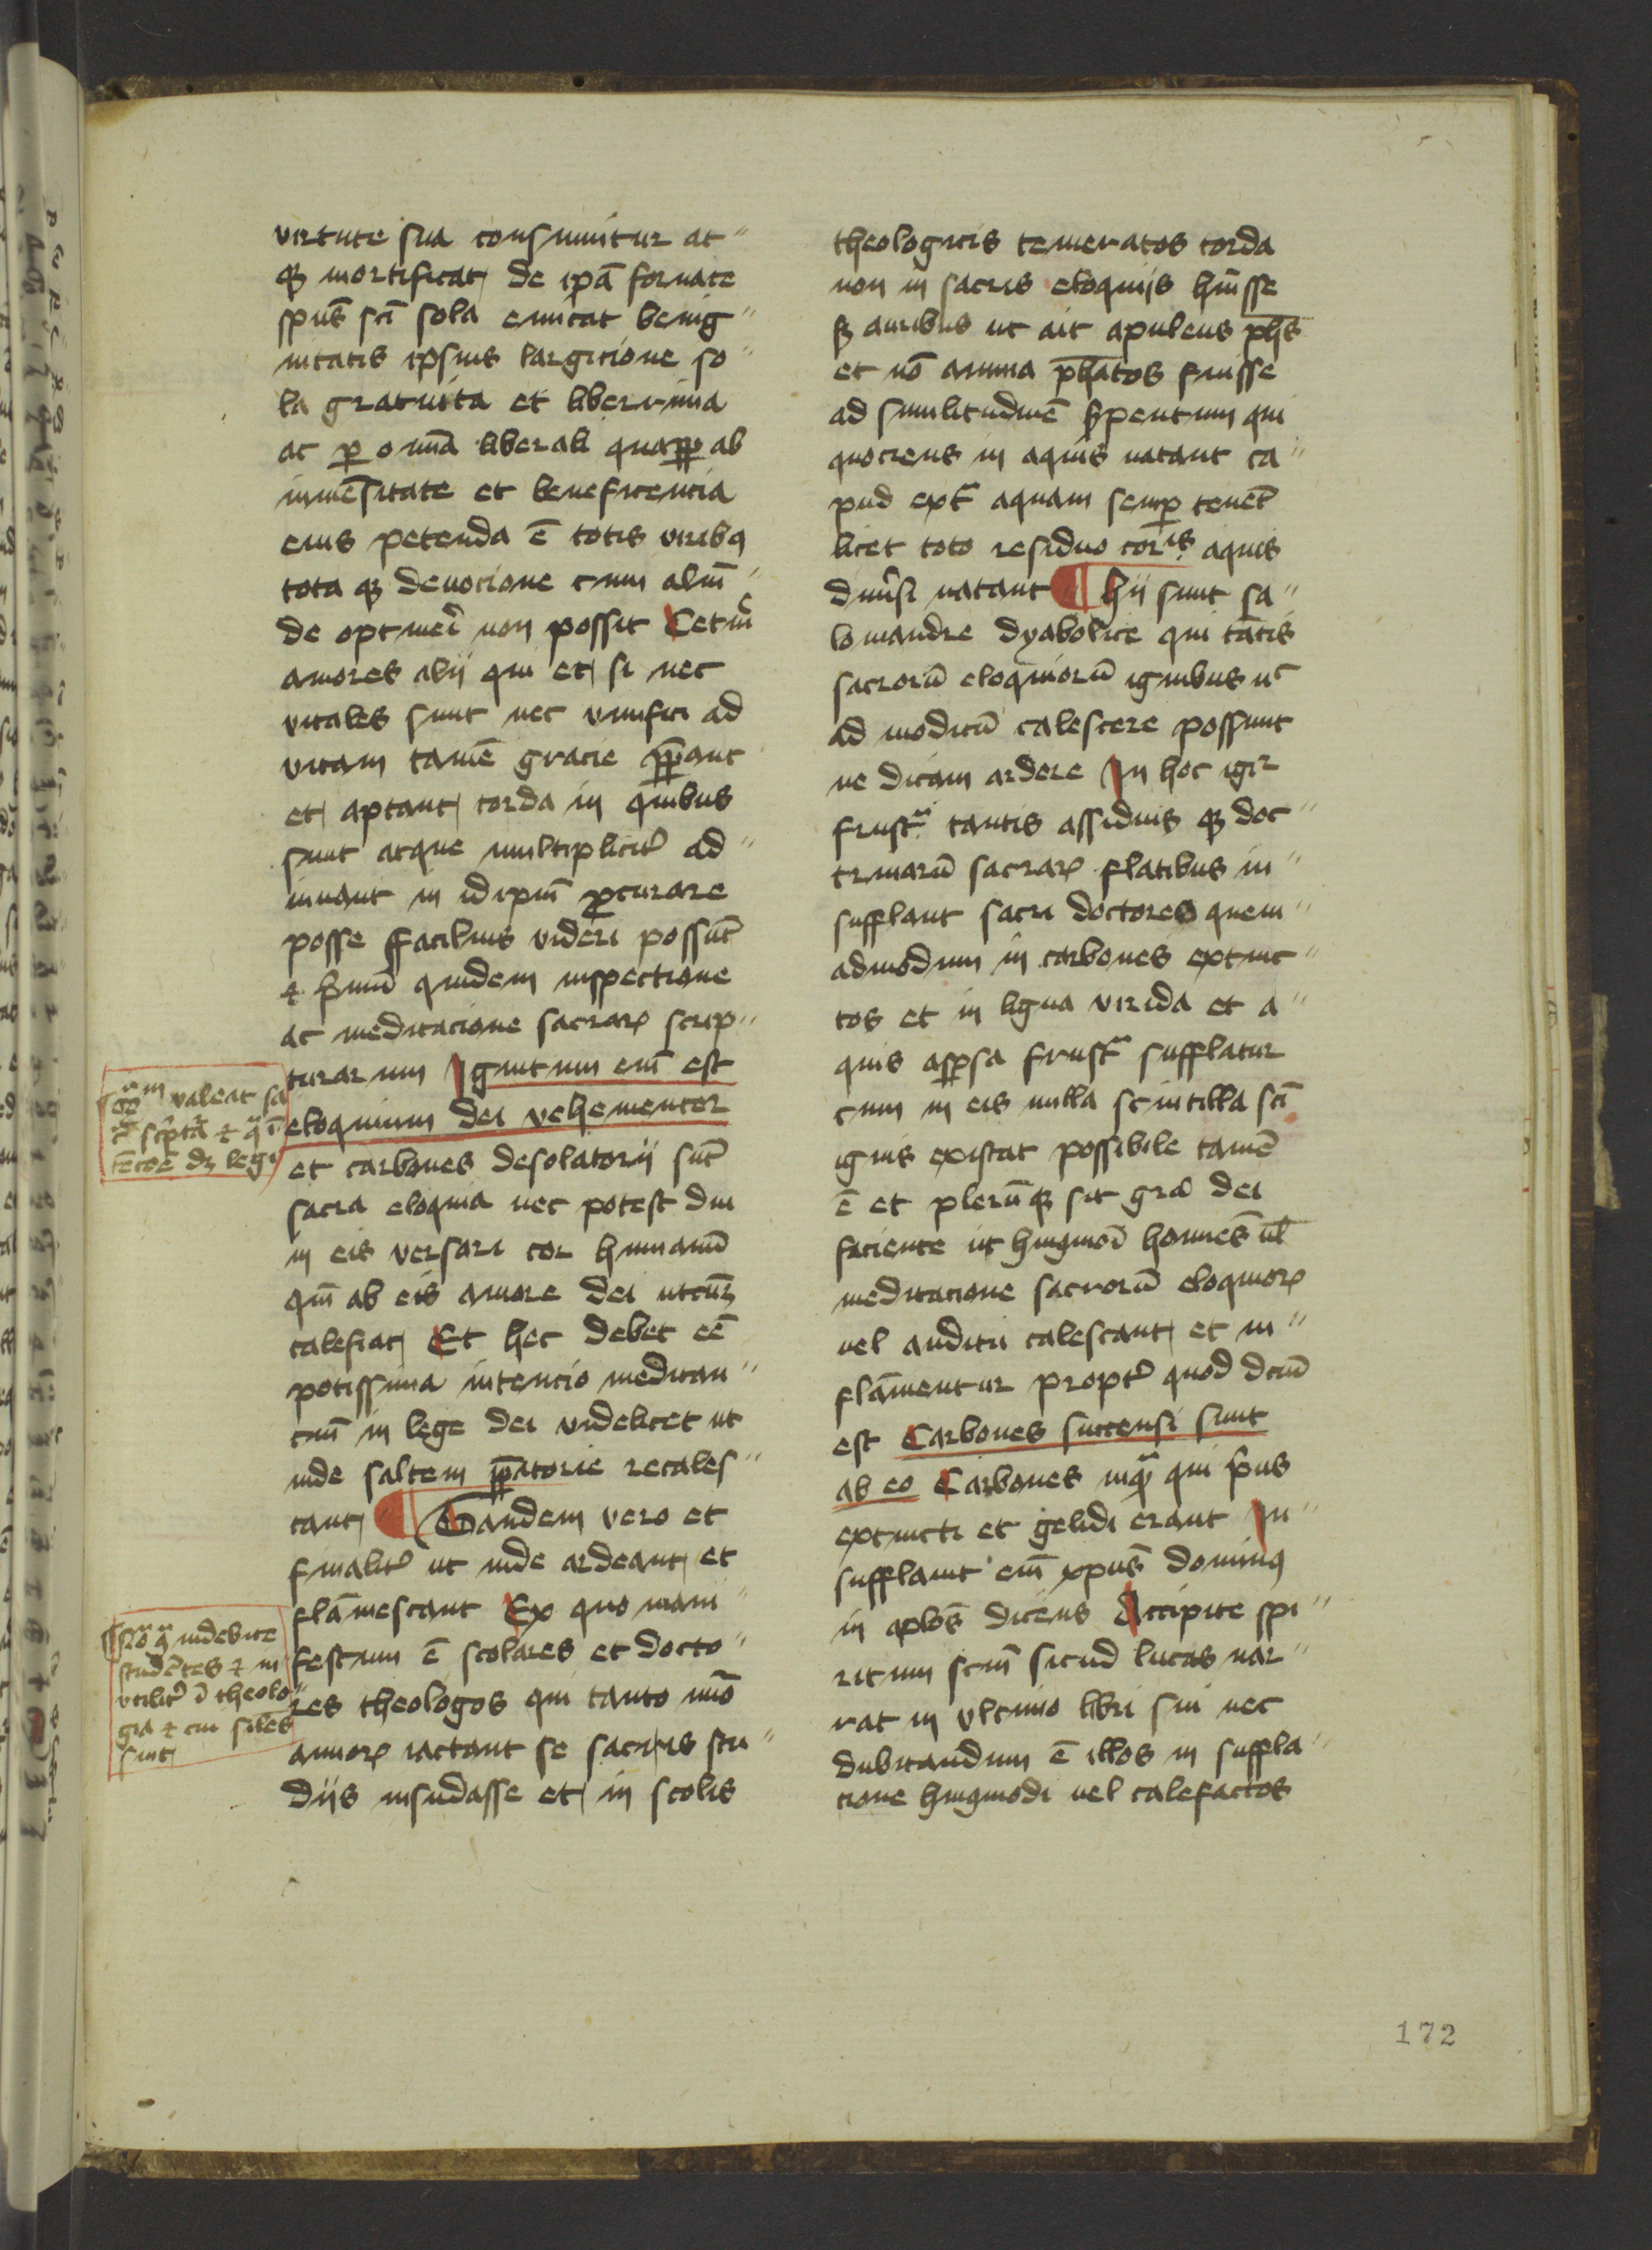 virtute sua consumitur at"
qꝫ mortificat de ip̄a fornace
sp̄us sc̄i sola emicat benig"
nitatis ipsius largicione so"
la gratuita et liberrima
ac ꝑ om̄ia liberali quaꝓꝑ ab
inme̅sitate et beneficentia
eius petenda ē totis viribꝯ
tota qꝫ deuocione cum aliu̅"
de optineri non possit Ceteru̅
amores alij qui et si nec
vitales sunt nec viuifici ad
vitam tame̅ gracie p̄parant
et aptant corda in quibus
sunt atque multiplicit̛ ad"
iuuant in idip̄m ꝓcurare
posse ffacilius videri possu̅t
⁊ p̛mu̅ quidem inspectione
ac meditacione sacraꝝ scrip"
turarum Ignitum eni̅ est
eloquium dei vehementer
et carbones desolatorij su̅t
sacra eloquia nec potest diu
in eis versari cor humanu̅
qui̅ ab eis amore dei utcu̅qꝫ
calefiat Et hec debet ee̅
potissima intencio meditan"
ciu̅ in lege dei videlicet ut
inde saltem p̄patorie recales"
cant ¶ Tandem vero et
finalit̛ ut inde ardeant et
fla̅mescant Ex quo mani"
festum ē scolares et docto"
res theologos qui tanto nu̅o
annoꝝ iactant se sacris stu"
dijs insudasse et in scolis
valeat sa
c̛ sc̛ptu̅ ⁊ q̛
dꝫ legi
indebite
stude̅tes ⁊ in
vtilit̛ i̅ theolo"
gia ⁊ cui si̅les
sint
theologicis temeratos corda
non in sacris eloquijs h̅uisse
sꝫ auribus ut ait apuleus ph̅s
et no̅ anima ph̅atos fuisse
ad similitudine̅ s̛pentum qui
quociens in aquis natant ca"
pud ext̛ aquam semꝑ tene̅t
licet toto residuo corꝑis aquis
diưsi natant ¶ hij sunt sa"
lomandre dyabolice qui ta̅tis
sacroru̅ eloquioru̅ ignibus nc̅
ad modicu̅ calescere possunt
ne dicam ardere In hoc igit̛
frustᵃ tantis assiduis qꝫ doc"
trinaru̅ sacraꝝ flatibus in"
sufflant sacri doctores quem"
admodum in carbones extinc"
tos et in ligna virida et a"
quis asꝑsa frustᵃ sufflatur
cum in eis nulla scintilla sc̄i
ignis existat possibile tame̅
ē et pleru̅qꝫ sit gr̅a dei
faciente ut huiꝯmoi̅ homi̅es ul̅
meditacione sacroru̅ eloquioꝝ
uel auditu calescant et in"
fla̅mentur propt̛ quod dc̅m
est Carbones succensi sunt
ab eo Carbones inquᵃ qui p̛us
extincti et gelidi erant In"
sufflauit eni̅ xp̅us dominꝯ
in ap̅los dicens Accipite spi"
ritum sc̅m sicud lucas nar"
rat in vltimo libri sui nec
dubitandum ē illos in suffla"
cione huiꝯmodi uel calefactos
172